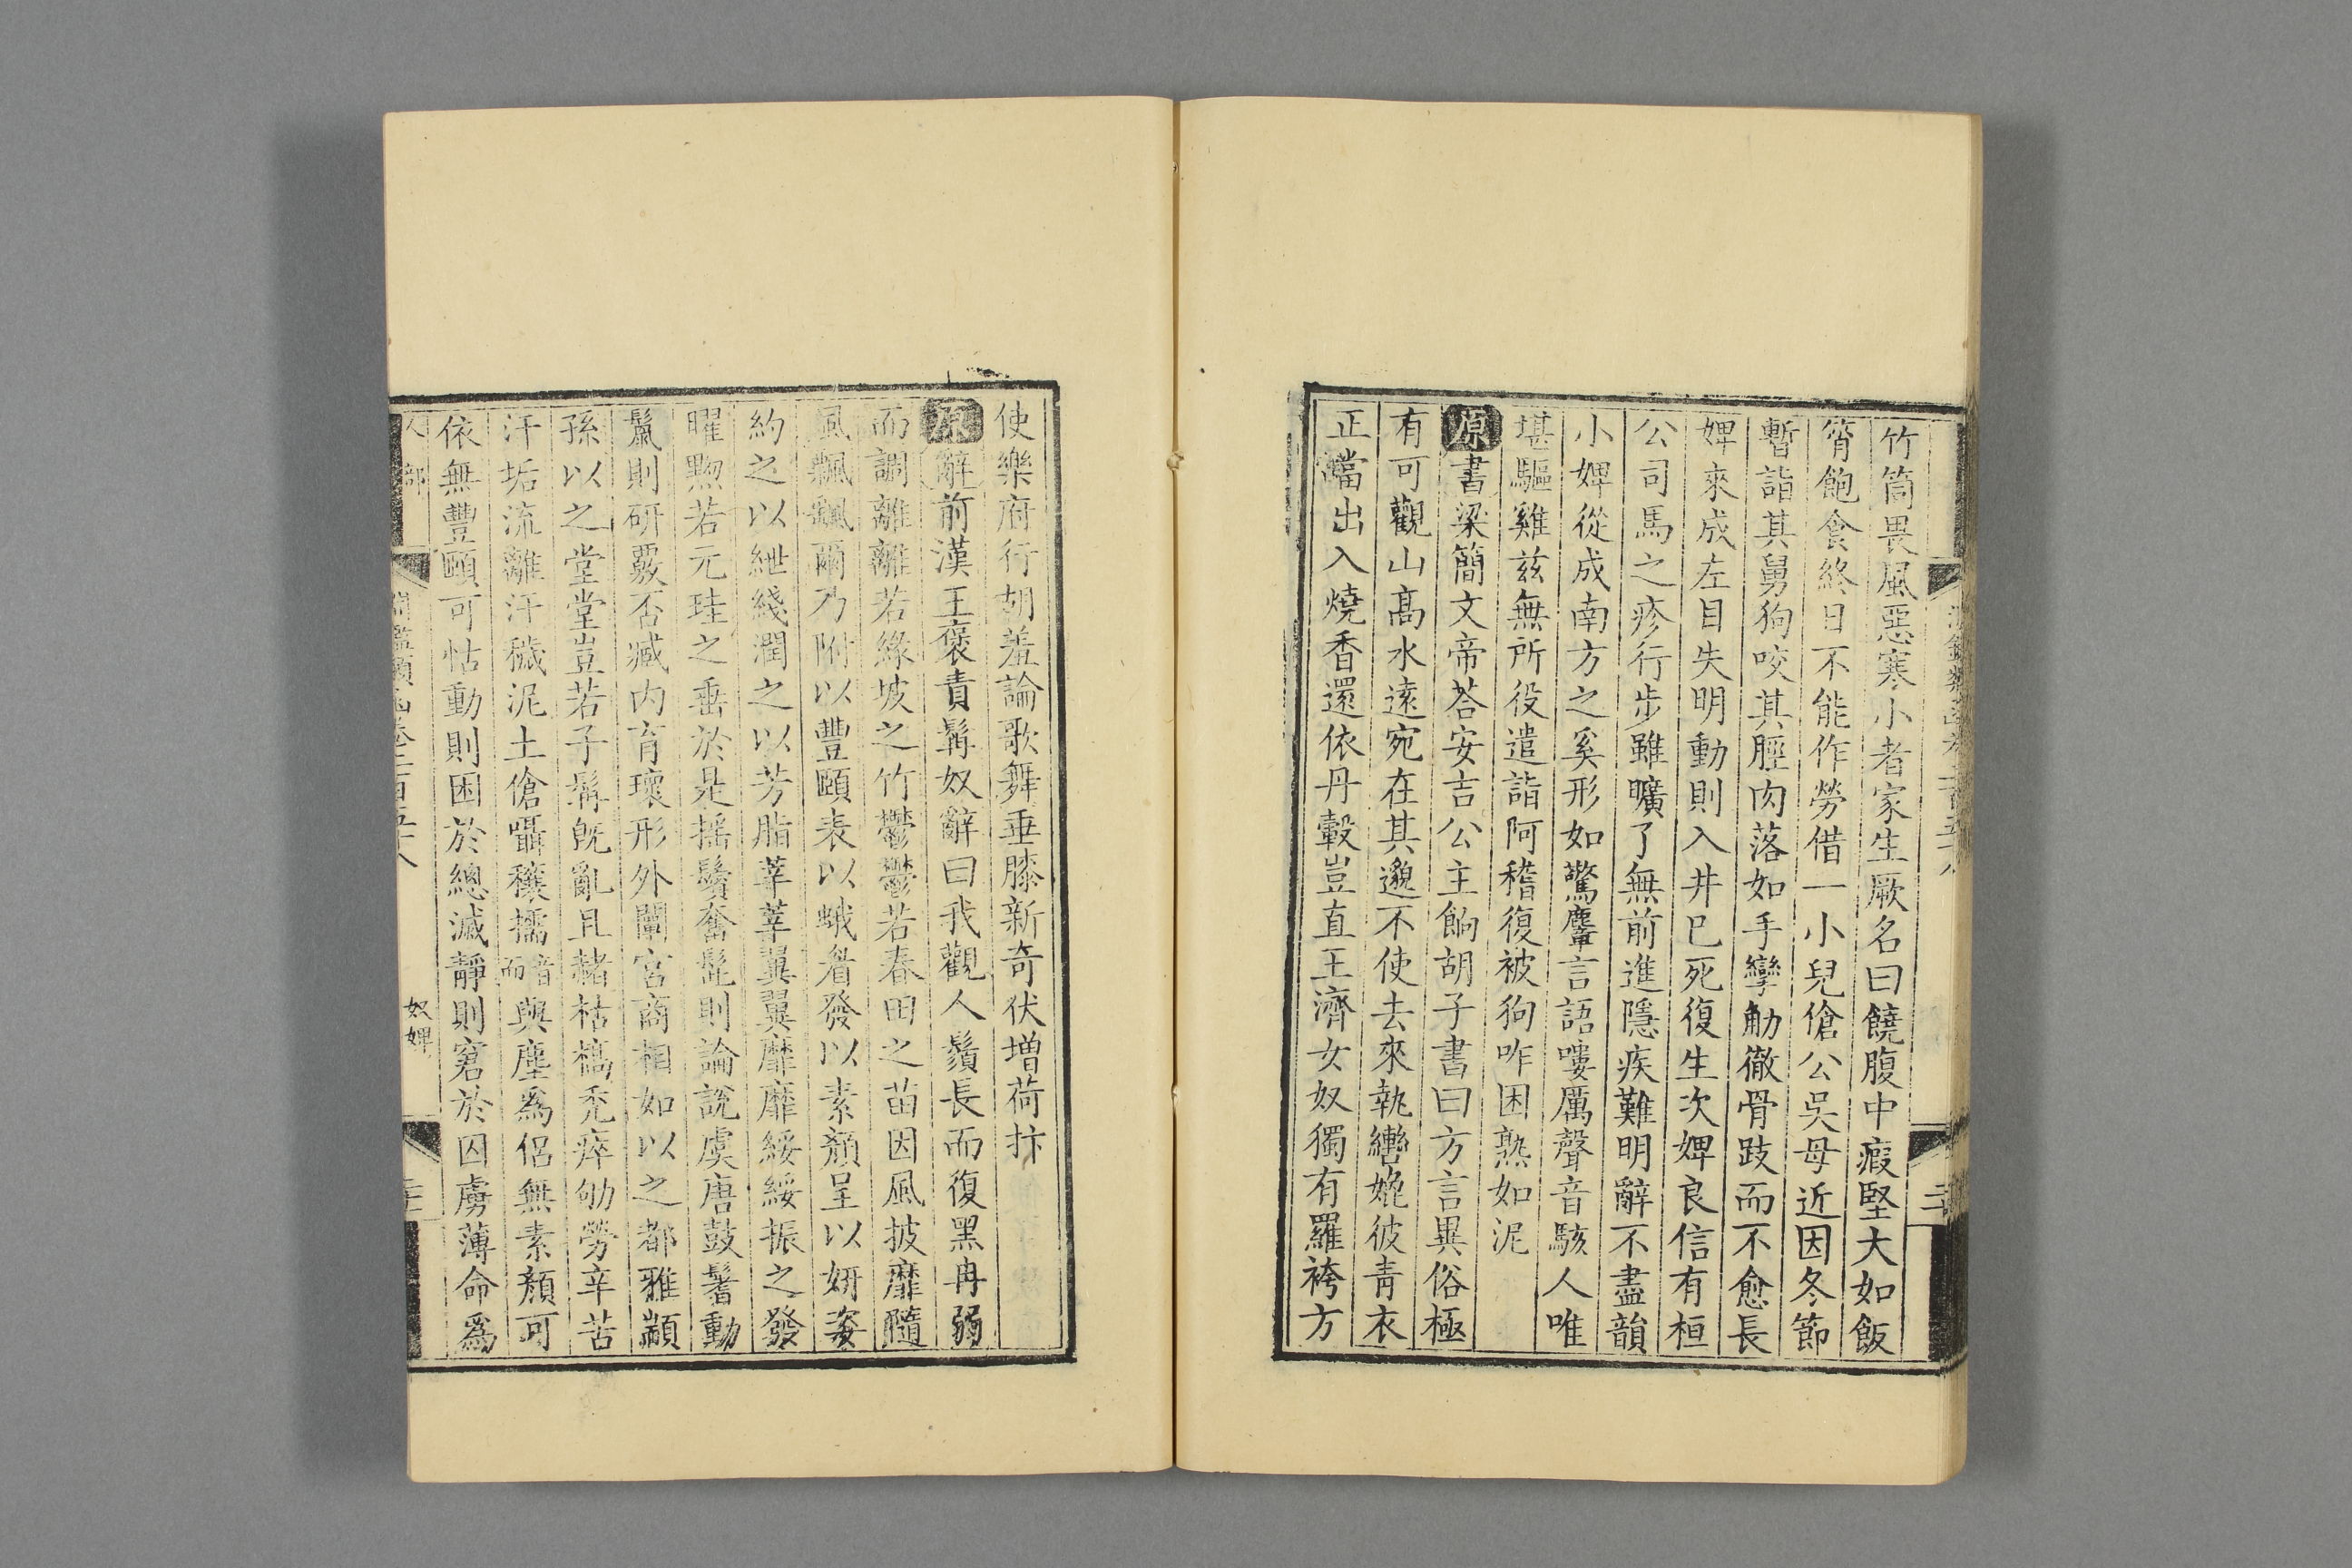 竹筒畏風惡寒小者家生厥名曰饒腹中瘕堅大如飯
筲飽食終日不能作勞借一小兒傖公吳母近因冬節
暫詣其舅狗咬其脛肉落如手攣觔徹骨跂而不愈長
婢來成左目失明動則入井巳死復生次婢良信有桓
公司馬之疹行步雖曠了無前進隱疾難明辭不盡韻
小婢從成南方之奚形如驚麞言語嘍厲聲音駭人唯
堪驅雞兹無所役遣詣阿稽復被狗咋困熟如泥
原書梁簡文帝荅安吉公主餉胡子書曰方言異俗極
有可觀山髙水逺宛在其邈不使去來執轡㛯彼青衣
正當出入燒香還依丹轂豈直王濟女奴獨有羅袴方
使樂府行胡羞論歌舞垂膝新奇伏增荷抃
原辭前漢王褒責髯奴辭曰我觀人鬚長而復黑冉弱
而調離離若緣坡之竹鬱鬱若春田之苗因風披靡隨
風飄飄爾乃附以豐頤表以蛾眉發以素顏呈以妍姿
約之以紲綫潤之以芳脂莘莘翼翼靡靡綏綏振之發
曜黝若元珪之垂於是摇鬚奮髭則論說虞唐鼓鬐動
鬣則研覈否臧内育瓌形外闡宮商相如以之都雅顓
孫以之堂堂豈若子髯旣亂且赭枯槁禿瘁劬勞辛苦
汗垢流離汗穢泥土傖囁穰擩音而與塵爲侶無素顏可
依無豐頤可怙動則困於總滅靜則窘於囚虜薄命爲
人部
奴婢